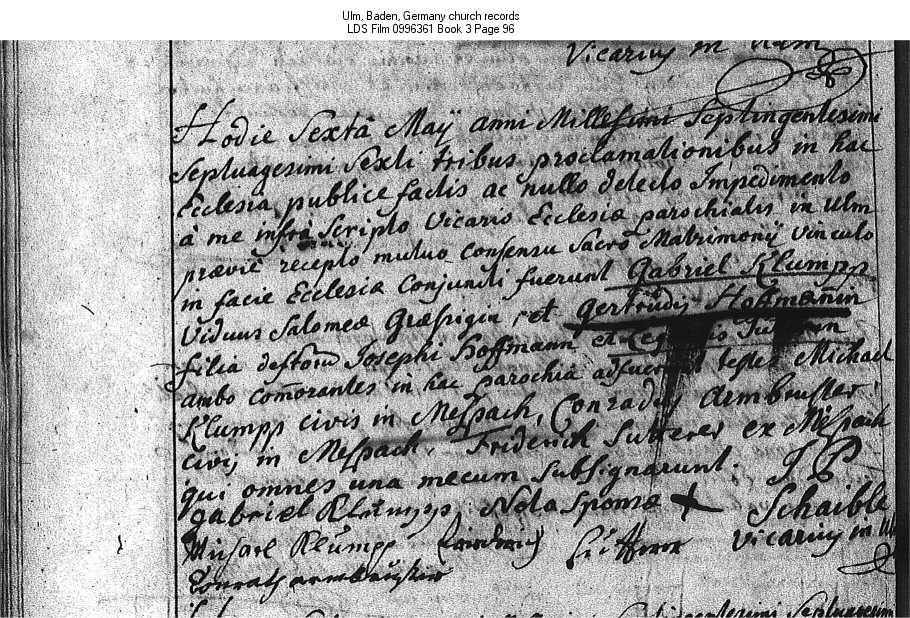 Ulm, Baden, Germany church records
LDS Film 0996361 Book 3 Page 96
Vicarius in Ulm
Hodie Sextâ Maÿ anni Millesimi Septingentesimi
Septuagesimi Sexti tribus proclamationibus in hac
Ecclesia publice factis ac nullo detecto Impedimento
à me infra Scripto Vicario Ecclesiæ parochialis in Ulm
prævie recepto mutuo Consensu Sacro Matrimonÿ vinculo
in facie Ecclesiæ Conjuncti fuerunt Gabriel Klumpp
Viduus Salomeæ Græssigin et Gertrudis Hoffmanin
filia deftorum Josephi Hoffmann et
ambo com̄orantes in hac parochia adfuerunt testes Michael
Klumpp civis in Mespach, Conradus Armbruster
civis in Mespach, Friderich Sutterer ex Mespach
qui omnes una mecum subsignarunt.
Gabriel Klumpp Nota Sponsæ + Schaible
Michael Klumpp Vicarius in Ulm
Conrath armbruster